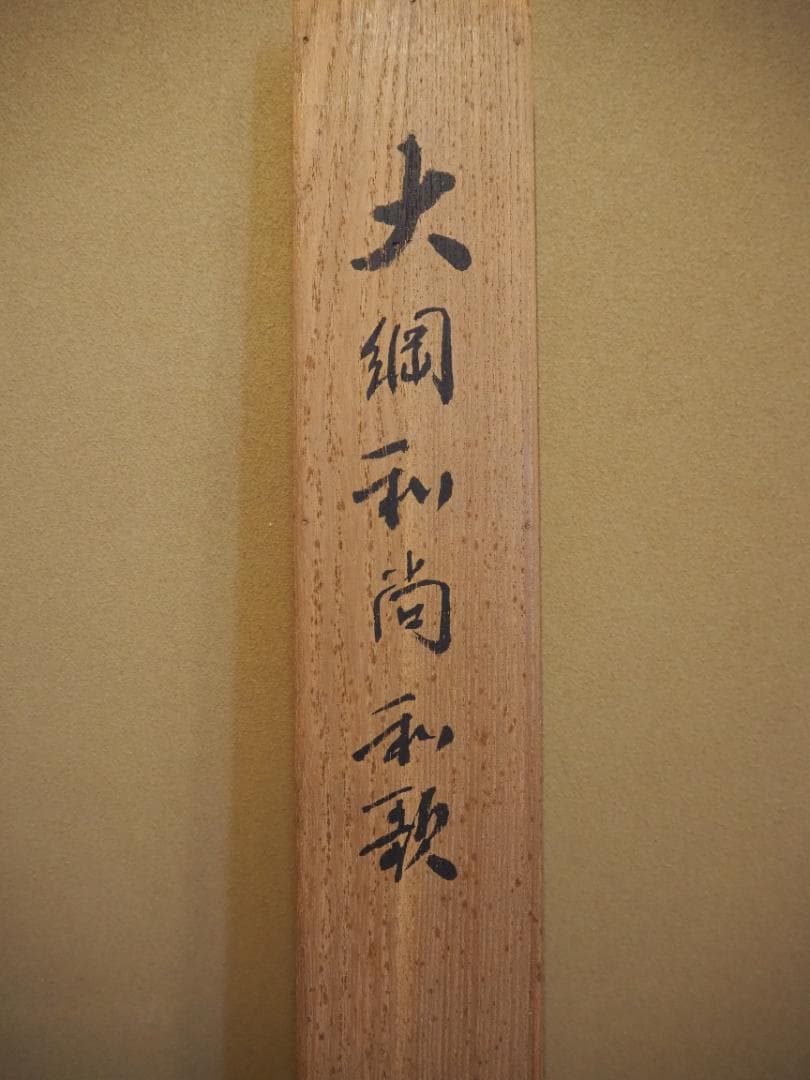 大綱和尚和歌